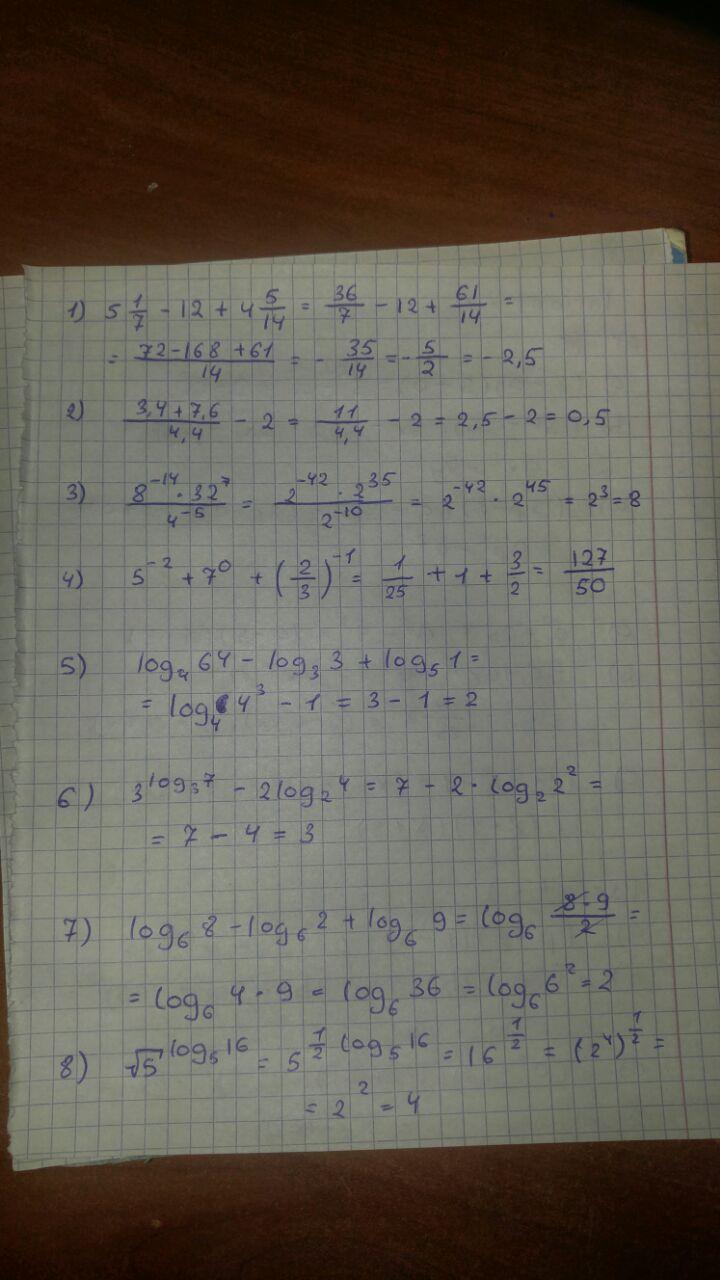 1) 5 1/7 - 12 + 4 5/14 = 36/7 - 12 + 61/14 =
= (72 - 168 + 61)/14 = - 35/14 = - 5/2 = - 2,5
2) (3,4 + 7,6)/4,4 - 2 = 11/4,4 - 2 = 2,5 - 2 = 0,5
3) (8^-14 · 32^7)/4^-5 = (2^-42 · 2^35)/2^-10 = 2^-42 · 2^45 = 2^3 = 8
4) 5^-2 + 7^0 + (2/3)^-1 = 1/25 + 1 + 3/2 = 127/50
5) log_4 64 - log_3 3 + log_5 1 =
= log_4 4^3 - 1 = 3 - 1 = 2
6) 3^(log_3 7) - 2 log_2 4 = 7 - 2 · log_2 2^2 =
= 7 - 4 = 3
7) log_6 8 - log_6 2 + log_6 9 = log_6 (8 · 9)/2 =
= log_6 4 · 9 = log_6 36 = log_6 6^2 = 2
8) √5^(log_5 16) = 5^(1/2 log_5 16) = 16^(1/2) = (2^4)^(1/2) =
= 2^2 = 4